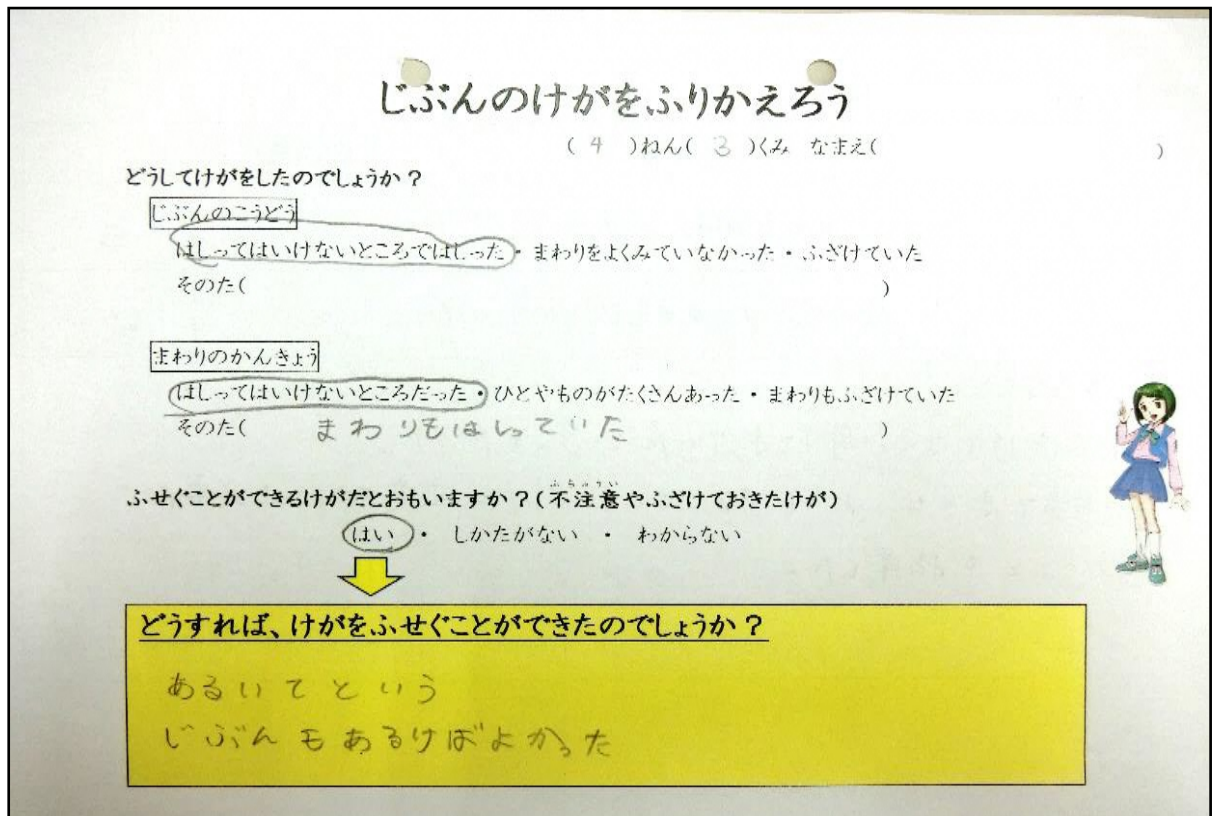 じぶんのけがをふりかえろう
( 4 )ねん( 3 )くみ なまえ( )
どうしてけがをしたのでしょうか？
じぶんのこうどう
はしってはいけないところではしった・まわりをよくみていなかった・ふざけていた
そのた( )
まわりのかんきょう
はしってはいけないところだった・ひとやものがたくさんあった・まわりもふざけていた
そのた( まわりもはしっていた )
ふちゅうい
ふせぐことができるけがだとおもいますか？(不注意やふざけておきたけが)
はい・ しかたがない ・ わからない
どうすれば、けがをふせぐことができたのでしょうか？
あるいてという
じぶんもあるけばよかった